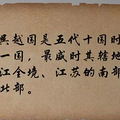 吴越国是五代十国时
一国，最盛时其辖地
江全境、江苏的南部
北部。